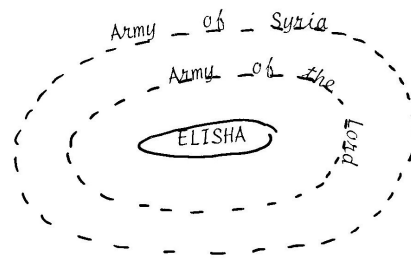 Army of Syria
Army of the Lord
ELISHA